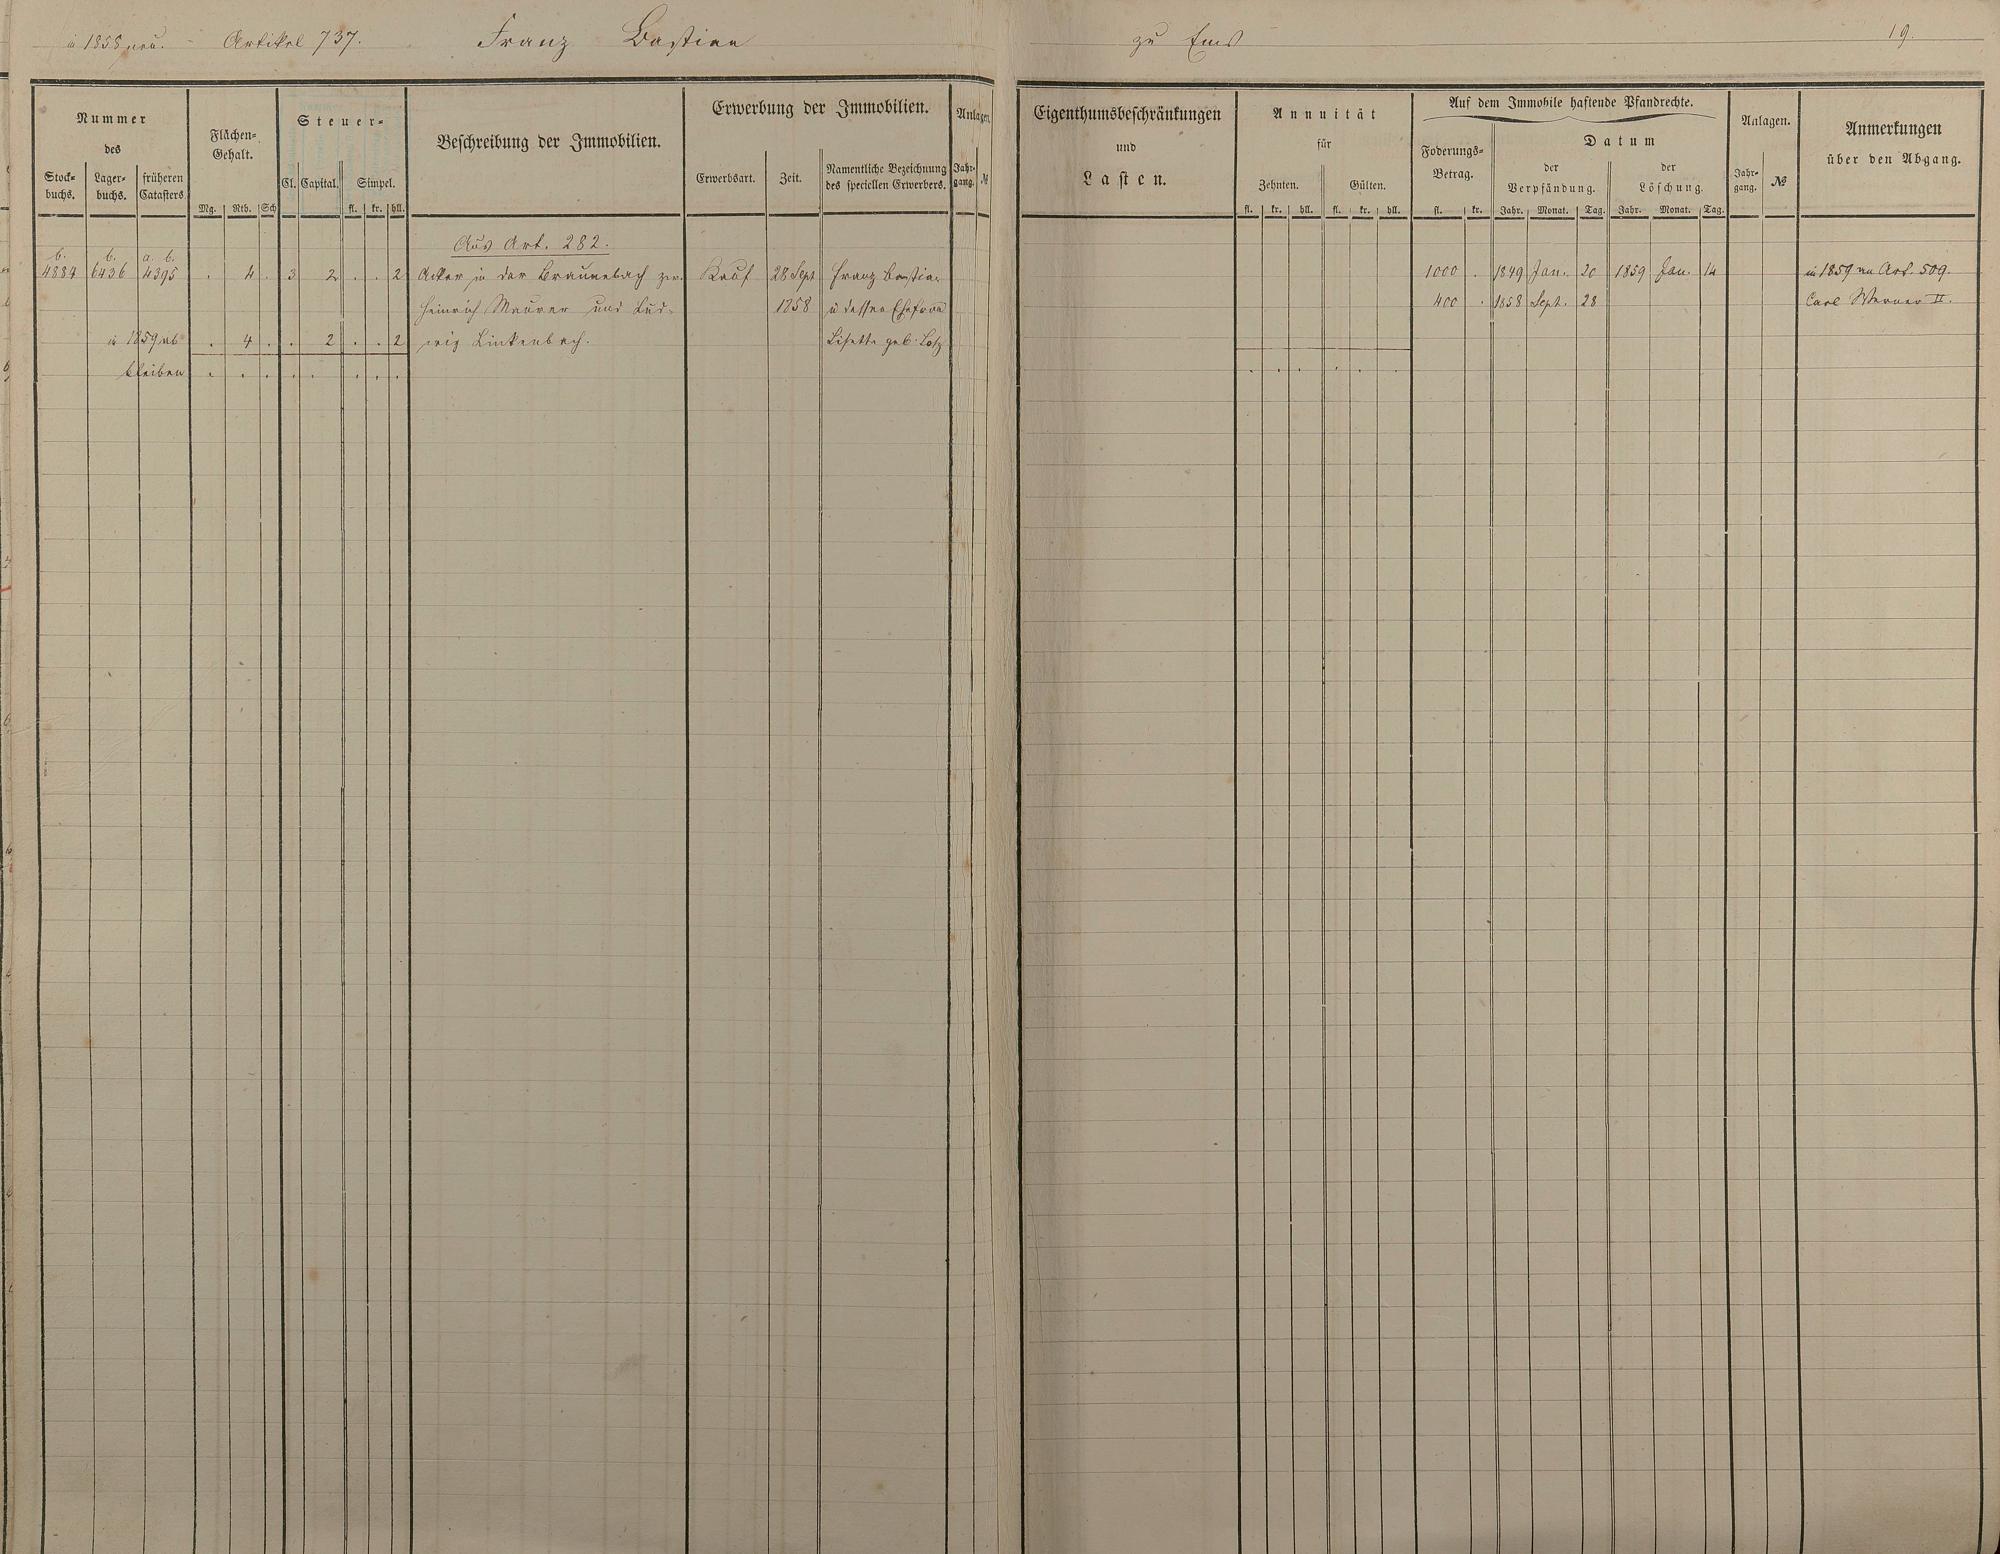 in 1858 neu. - Artikel 737. Franz Bastian zu Ems 19.
Nummer
des
Stock-
buchs.
Lager-
buchs.
früheren
Catasters
Flächen-
Gehalt.
Mg. Rth. Sch
Steuer-
Cl. Capital. Simpel.
fl. kr. hll.
Beschreibung der Immobilien.
Erwerbung der Immobilien.
Erwerbsart. Zeit.
Namentliche Bezeichnung
des speciellen Erwerbers.
Anlagen.
Jahr-
gang. №
Eigenthumsbeschränkungen
und
Lasten.
Annuität
für
Zehnten. Gülten.
fl. kr. hll. fl. kr. hll.
Auf dem Immobile haftende Pfandrechte.
Foderungs-
Betrag.
fl. kr.
Datum
der
Verpfändung.
Jahr. Monat. Tag.
der
Löschung.
Jahr. Monat. Tag.
Anlagen.
Jahr-
gang. №
Anmerkungen
über den Abgang.
Aus Art. 282.
b. b. a. b.
4884 6436 4395 . 4 . 3 2 . . 2 Acker in der Braunebach zw. Kauf 28 Sept Franz Bastian 1000 . 1849 Jan. 20 1859 Jan. 14 in 1859 an Art. 509.
Heinrich Maurer und Lud- 1858 u dessen Ehefrau 400 . 1858 Sept. 28 Carl Werner II.
in 1859 ab . 4 . . 2 . . 2 wig Linkenbach. Lisette geb. Lotz
bleiben . . . . . . . . . . . . . .